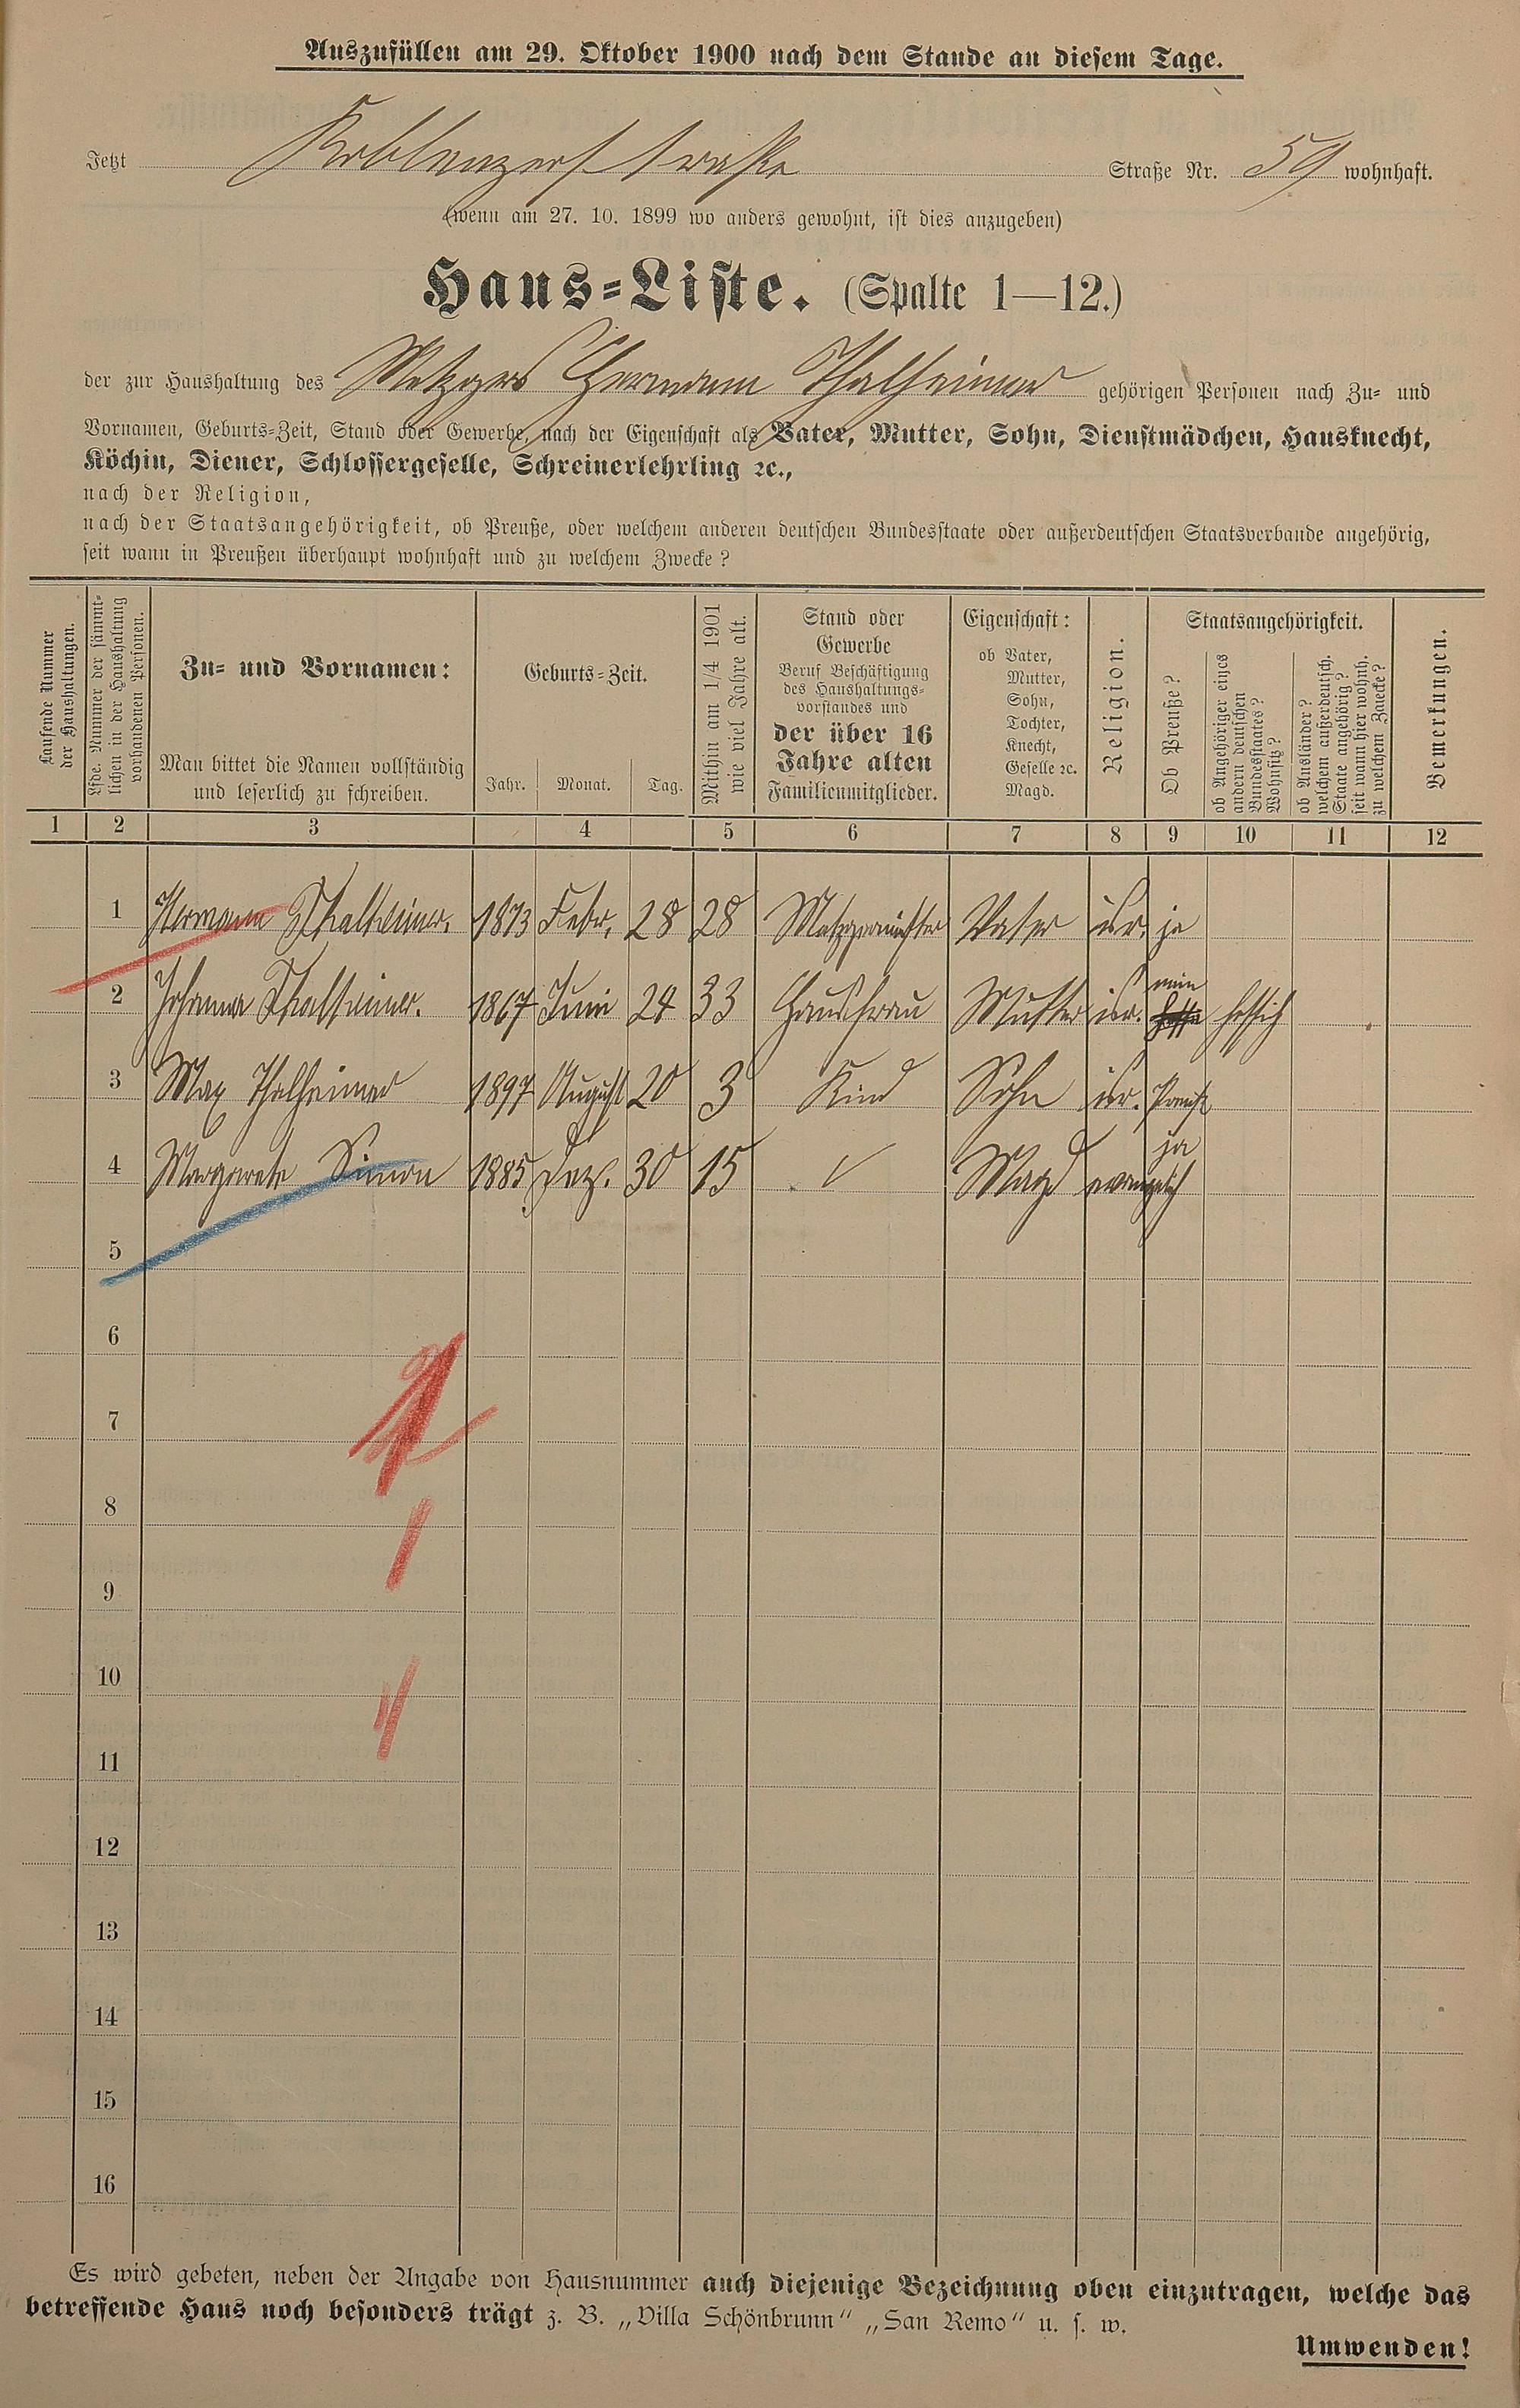 Auszufüllen am 29. Oktober 1900 nach dem Stande an diesem Tage.
Jetzt Koblenzerstraße Straße Nr. 59 wohnhaft.
(wenn am 27. 10. 1899 wo anders gewohnt, ist dies anzugeben)
Haus-Liste. (Spalte 1—12.)
der zur Haushaltung des Metzgers Hermann Thalheimer gehörigen Personen nach Zu- und
Vornamen, Geburts-Zeit, Stand oder Gewerbe, nach der Eigenschaft als Vater, Mutter, Sohn, Dienstmädchen, Hausknecht,
Köchin, Diener, Schlossergeselle, Schreinerlehrling ꝛc.,
nach der Religion,
nach der Staatsangehörigkeit, ob Preuße, oder welchem anderen deutschen Bundesstaate oder außerdeutschen Staatsverbande angehörig,
seit wann in Preußen überhaupt wohnhaft und zu welchem Zwecke?
Laufende Nummer
der Haushaltungen.
Lfde. Nummer der sämmt-
lichen in der Haushaltung
vorhandenen Personen.
Zu- und Vornamen:
Man bittet die Namen vollständig
und leserlich zu schreiben.
Geburts-Zeit.
Jahr. Monat. Tag.
Mithin am 1/4 1901
wie viel Jahre alt.
Stand oder
Gewerbe
Beruf Beschäftigung
des Haushaltungs-
vorstandes und
der über 16
Jahre alten
Familienmitglieder.
Eigenschaft:
ob Vater,
Mutter,
Sohn,
Tochter,
Knecht,
Geselle ꝛc.
Magd.
Religion.
Staatsangehörigkeit.
Ob Preuße?
ob Angehöriger eines
andern deutschen
Bundesstaates?
Wohnsitz?
ob Ausländer?
welchem außerdeutsch.
Staate angehörig?
seit wann hier wohnh.
zu welchem Zwecke?
Bemerkungen.
1 2 3 4 5 6 7 8 9 10 11 12
1 Hermann Thalheimer. 1873 Febr. 28 28 Metzgermeister Vater isr. ja
2 Johanna Thalheimer. 1867 Juni 24 33 Hausfrau Mutter isr. nein hessisch
3 Max Thalheimer 1897 August 20 3 Kind Sohn isr. Preuße
4 Margarete Simon 1885 Dez. 30 15 Magd evangelisch ja
5
6
7
8
9
10
11
12
13
14
15
16
Es wird gebeten, neben der Angabe von Hausnummer auch diejenige Bezeichnung oben einzutragen, welche das
betreffende Haus noch besonders trägt z. B. „Villa Schönbrunn“ „San Remo“ u. s. w.
Umwenden!